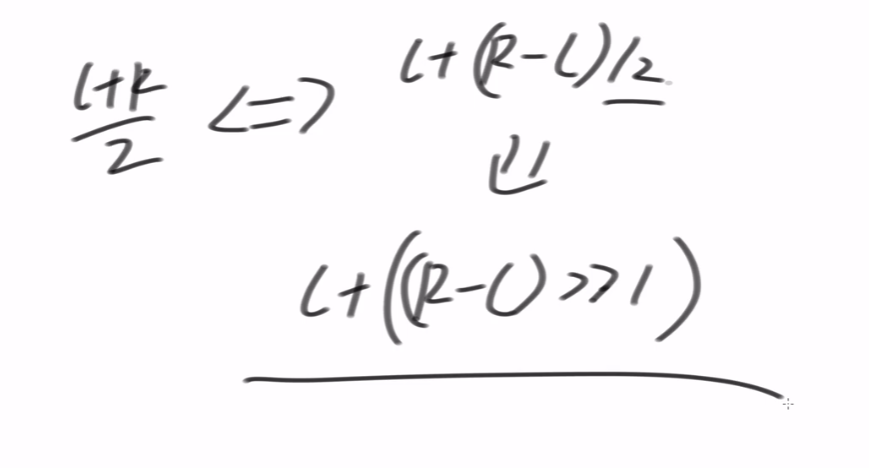 (L+R)/2 <=> L+(R-L)/2
⇓
L+((R-L)>>1)